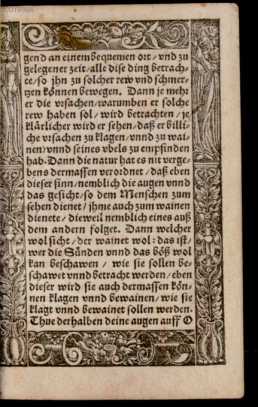 gend an einem bequemen ort / vnd zu
gelegener zeit / alle dise ding betrach-
te / so jhn zu solcher rew vnd schmer-
tzen können bewegen. Dann je meh-
er die vrsachen / warumben er solche
rew haben sol / wird betrachten / je
klärlicher wird er sehen / daß er billi-
che vrsachen zu klagen / vnnd zu wai-
nen / vnnd seines vbels zu empfinden
hab. Dann die natur hat es nit verge-
bens dermassen verordnet / daß eben
dieser sinn / nemblich die augen vnnd
das gesicht / so dem Menschen zum
sehen dienet / jhme auch zum wainen
dienete / dieweil nemblich eines auß
dem andern folget. Dann welcher
wol sicht / der wainet wol: das ist /
wer die Sünden vnnd das böß wol
kan beschawen / wie sie sollen be-
schawet vnnd betracht werden / eben
dieser wird sie auch dermassen kön-
nen klagen vnnd bewainen / wie sie
klagt vnnd bewainet sollen werden.
Thue derhalben deine augen auff O